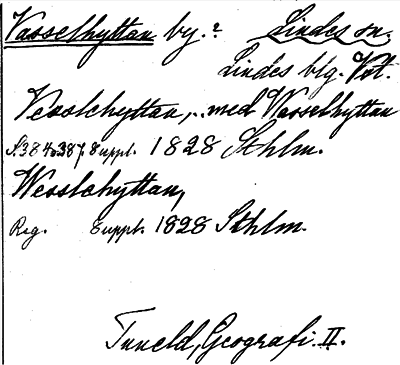 Vasselhyttan by.? Lindes sn.
Lindes blg. Vst.
Vesslehyttan,.. med Wasselhyttan
S. 384o387. Suppl. 1828 Sthlm.
Wesslehyttan,
Reg. Suppl. 1828 Sthlm.
Tuneld, Geografi. II.